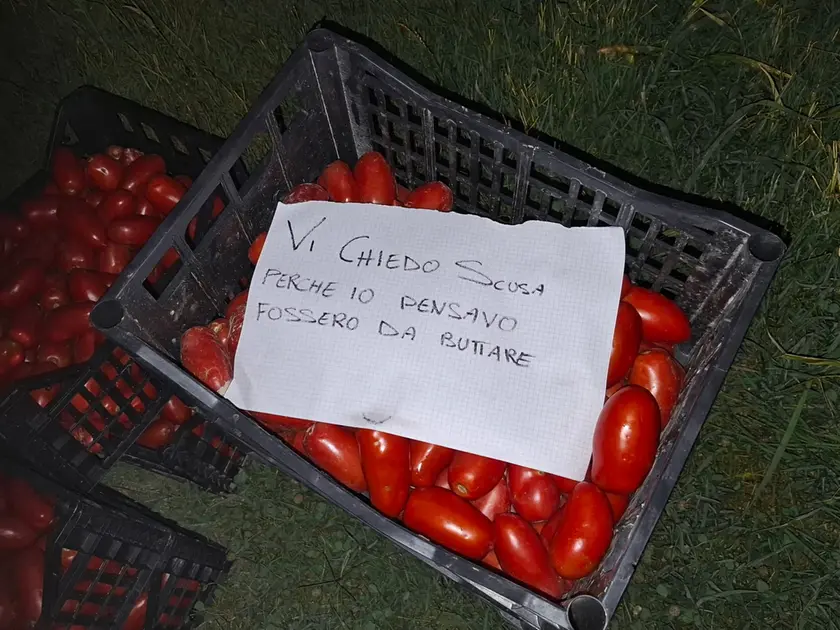 VI CHIEDO SCUSA
PERCHE IO PENSAVO
FOSSERO DA BUTTARE